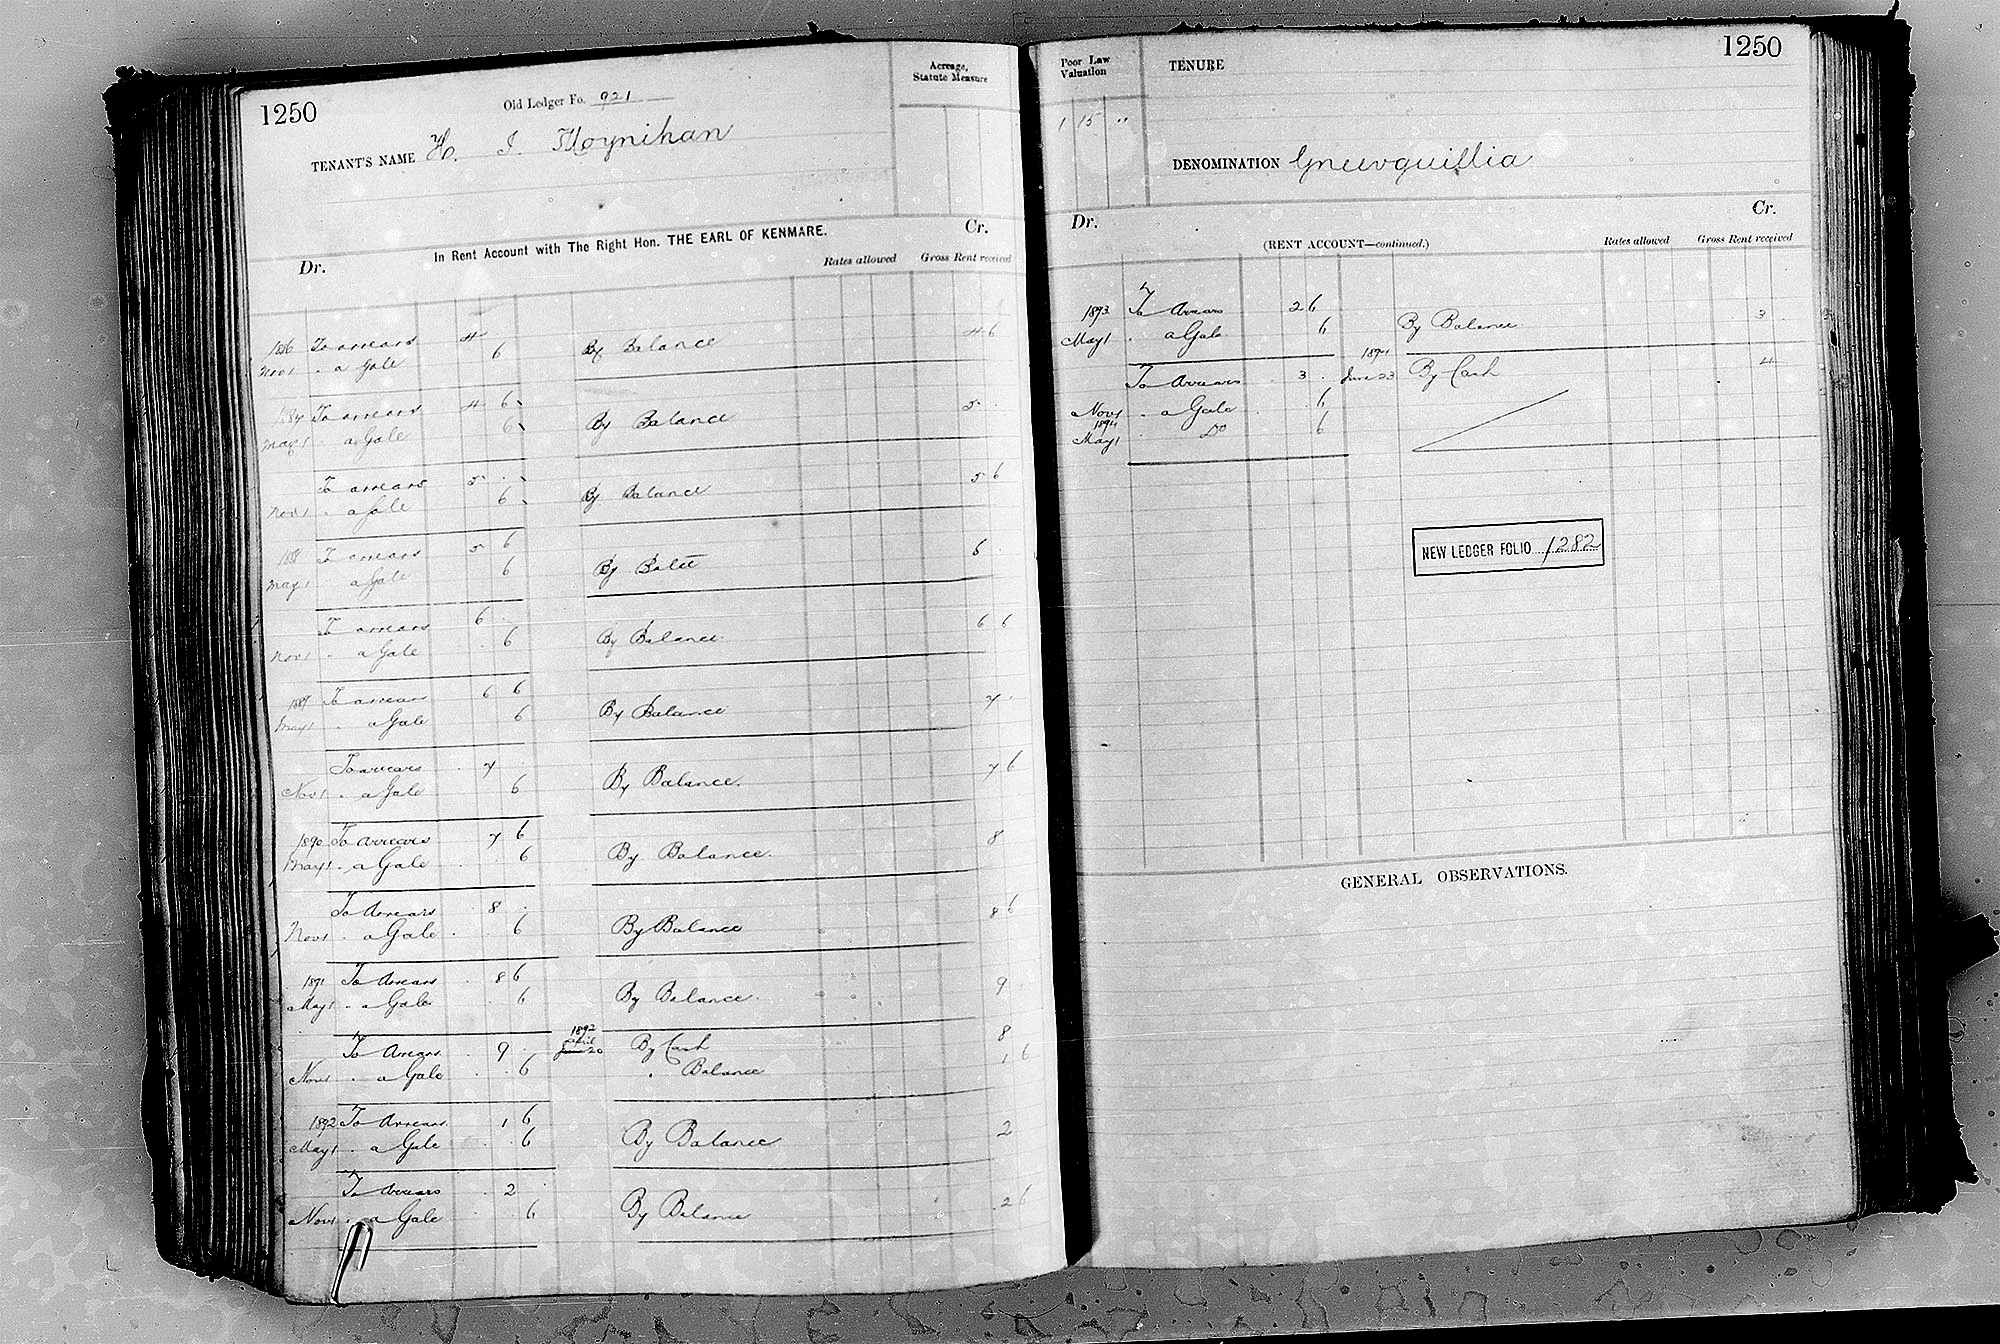 1250
Old Ledger Fo. 921
Acreage,
Statute Measure
TENANT'S NAME H. I. Moynihan
In Rent Account with The Right Hon. THE EARL OF KENMARE.
Dr.
Cr.
Rates allowed Gross Rent received
1886 To arrears 4
Nov 1 " a Gale 6 By Balance 4 6
1887 To arrears 4 6
May 1 " a Gale 6 By Balance 5 .
To arrears 5 .
Nov 1 " a Gale 6 By Balance 5 6
1888 To arrears 5 6
May 1 a Gale 6 By Balce 6 .
To arrears 6 .
Nov 1 " a Gale 6 By Balance 6 6
1889 To arrears 6 6
May 1 " a Gale 6 By Balance 7 .
To arrears 7
Nov 1 " a Gale 6 By Balance. 7 6
1890 To arrears 7 6
May 1 " a Gale 6 By Balance. 8
To Arrears 8 .
Nov 1 " a Gale 6 By Balance 8 6
1891 To Arrears 8 6
May 1 " a Gale 6 By Balance. 9
To Arrears 9 . 1892 April 20 By Cash 8
Nov 1 " a Gale 6 " Balance 1 6
1892 To Arrears. 1 6
May 1 " a Gale 6 By Balance 2
To Arrears 2
Nov 1 " a Gale 6 By Balance 2 6
1250
Poor Law
Valuation
TENURE
1 15 "
DENOMINATION Gneevguillia
Dr.
Cr.
(RENT ACCOUNT—continued.)
Rates allowed Gross Rent received
1893 To Arrears 2 6
May 1 " a Gale 6 By Balance 3
To Arrears 3 . 1894 June 23 By Cash 4
Nov 1 " a Gale 6
1894
May 1 " Do 6
NEW LEDGER FOLIO 1282
GENERAL OBSERVATIONS.